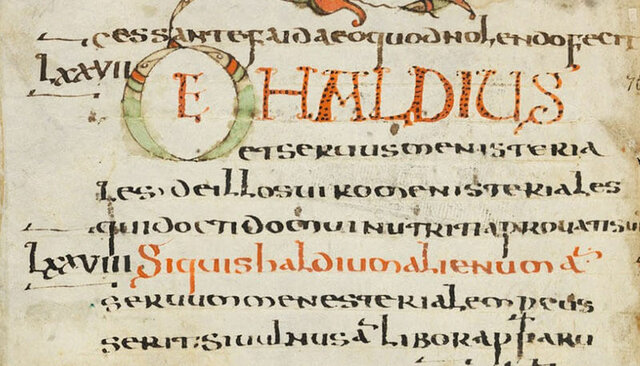 cessante faida eo quod nolendo fecit
Lxxvii DE HALDIUS
et seruus menisteria
les deillos uiro menisteriales
qui docti domui nutriti aprouati su
Lxxviii Siquis haldium alienum a
seruum menesterialem percus
serit si uulnus a libor appiaru